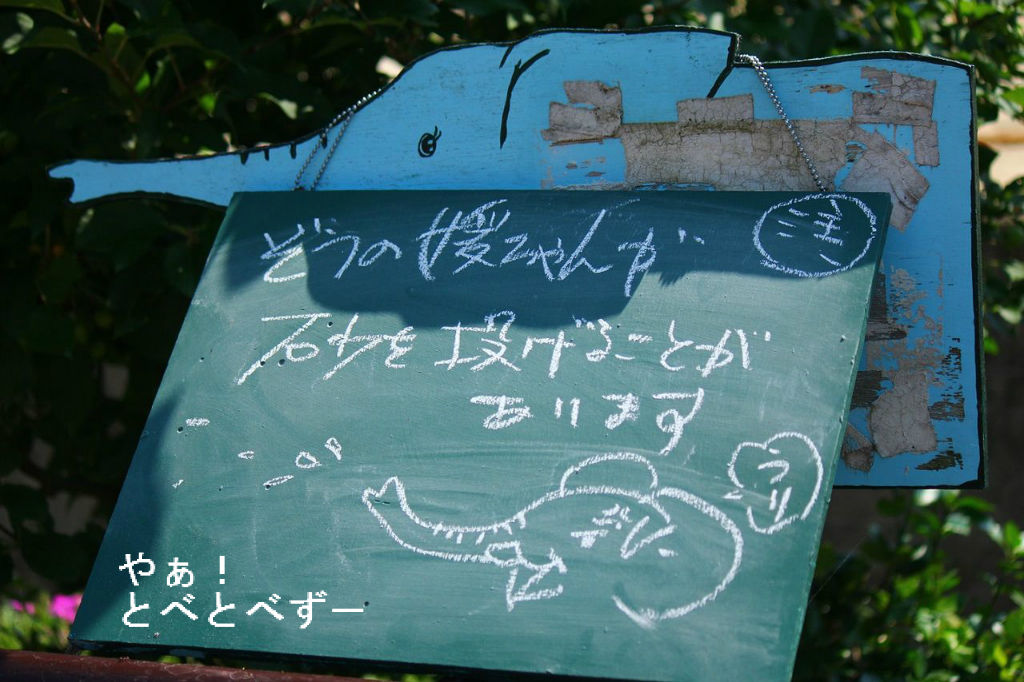 ぞうの媛ちゃんが
注
石や土を投げることが
あります
やぁ！
とべとべずー